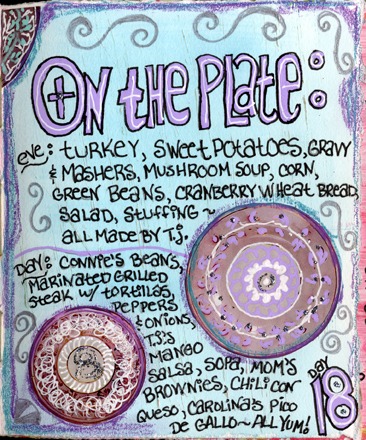 On the Plate:
eve: turkey, sweet potatoes, gravy
& mashers, mushroom soup, corn,
green beans, cranberry wheat bread,
salad, stuffing ~
all made by T.J.
Day: Connie's beans,
marinated grilled
steak w/ tortillas,
peppers
& onions,
T.J.'s
mango
salsa, sopa, mom's
brownies, chili con
queso, Carolina's pico
de gallo ~ all yum!
Day
18